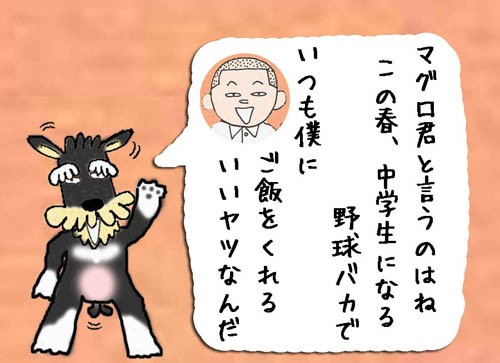 マグロ君と言うのはね
この春、中学生になる
野球バカで
いつも僕に
ご飯をくれる
いいヤツなんだ